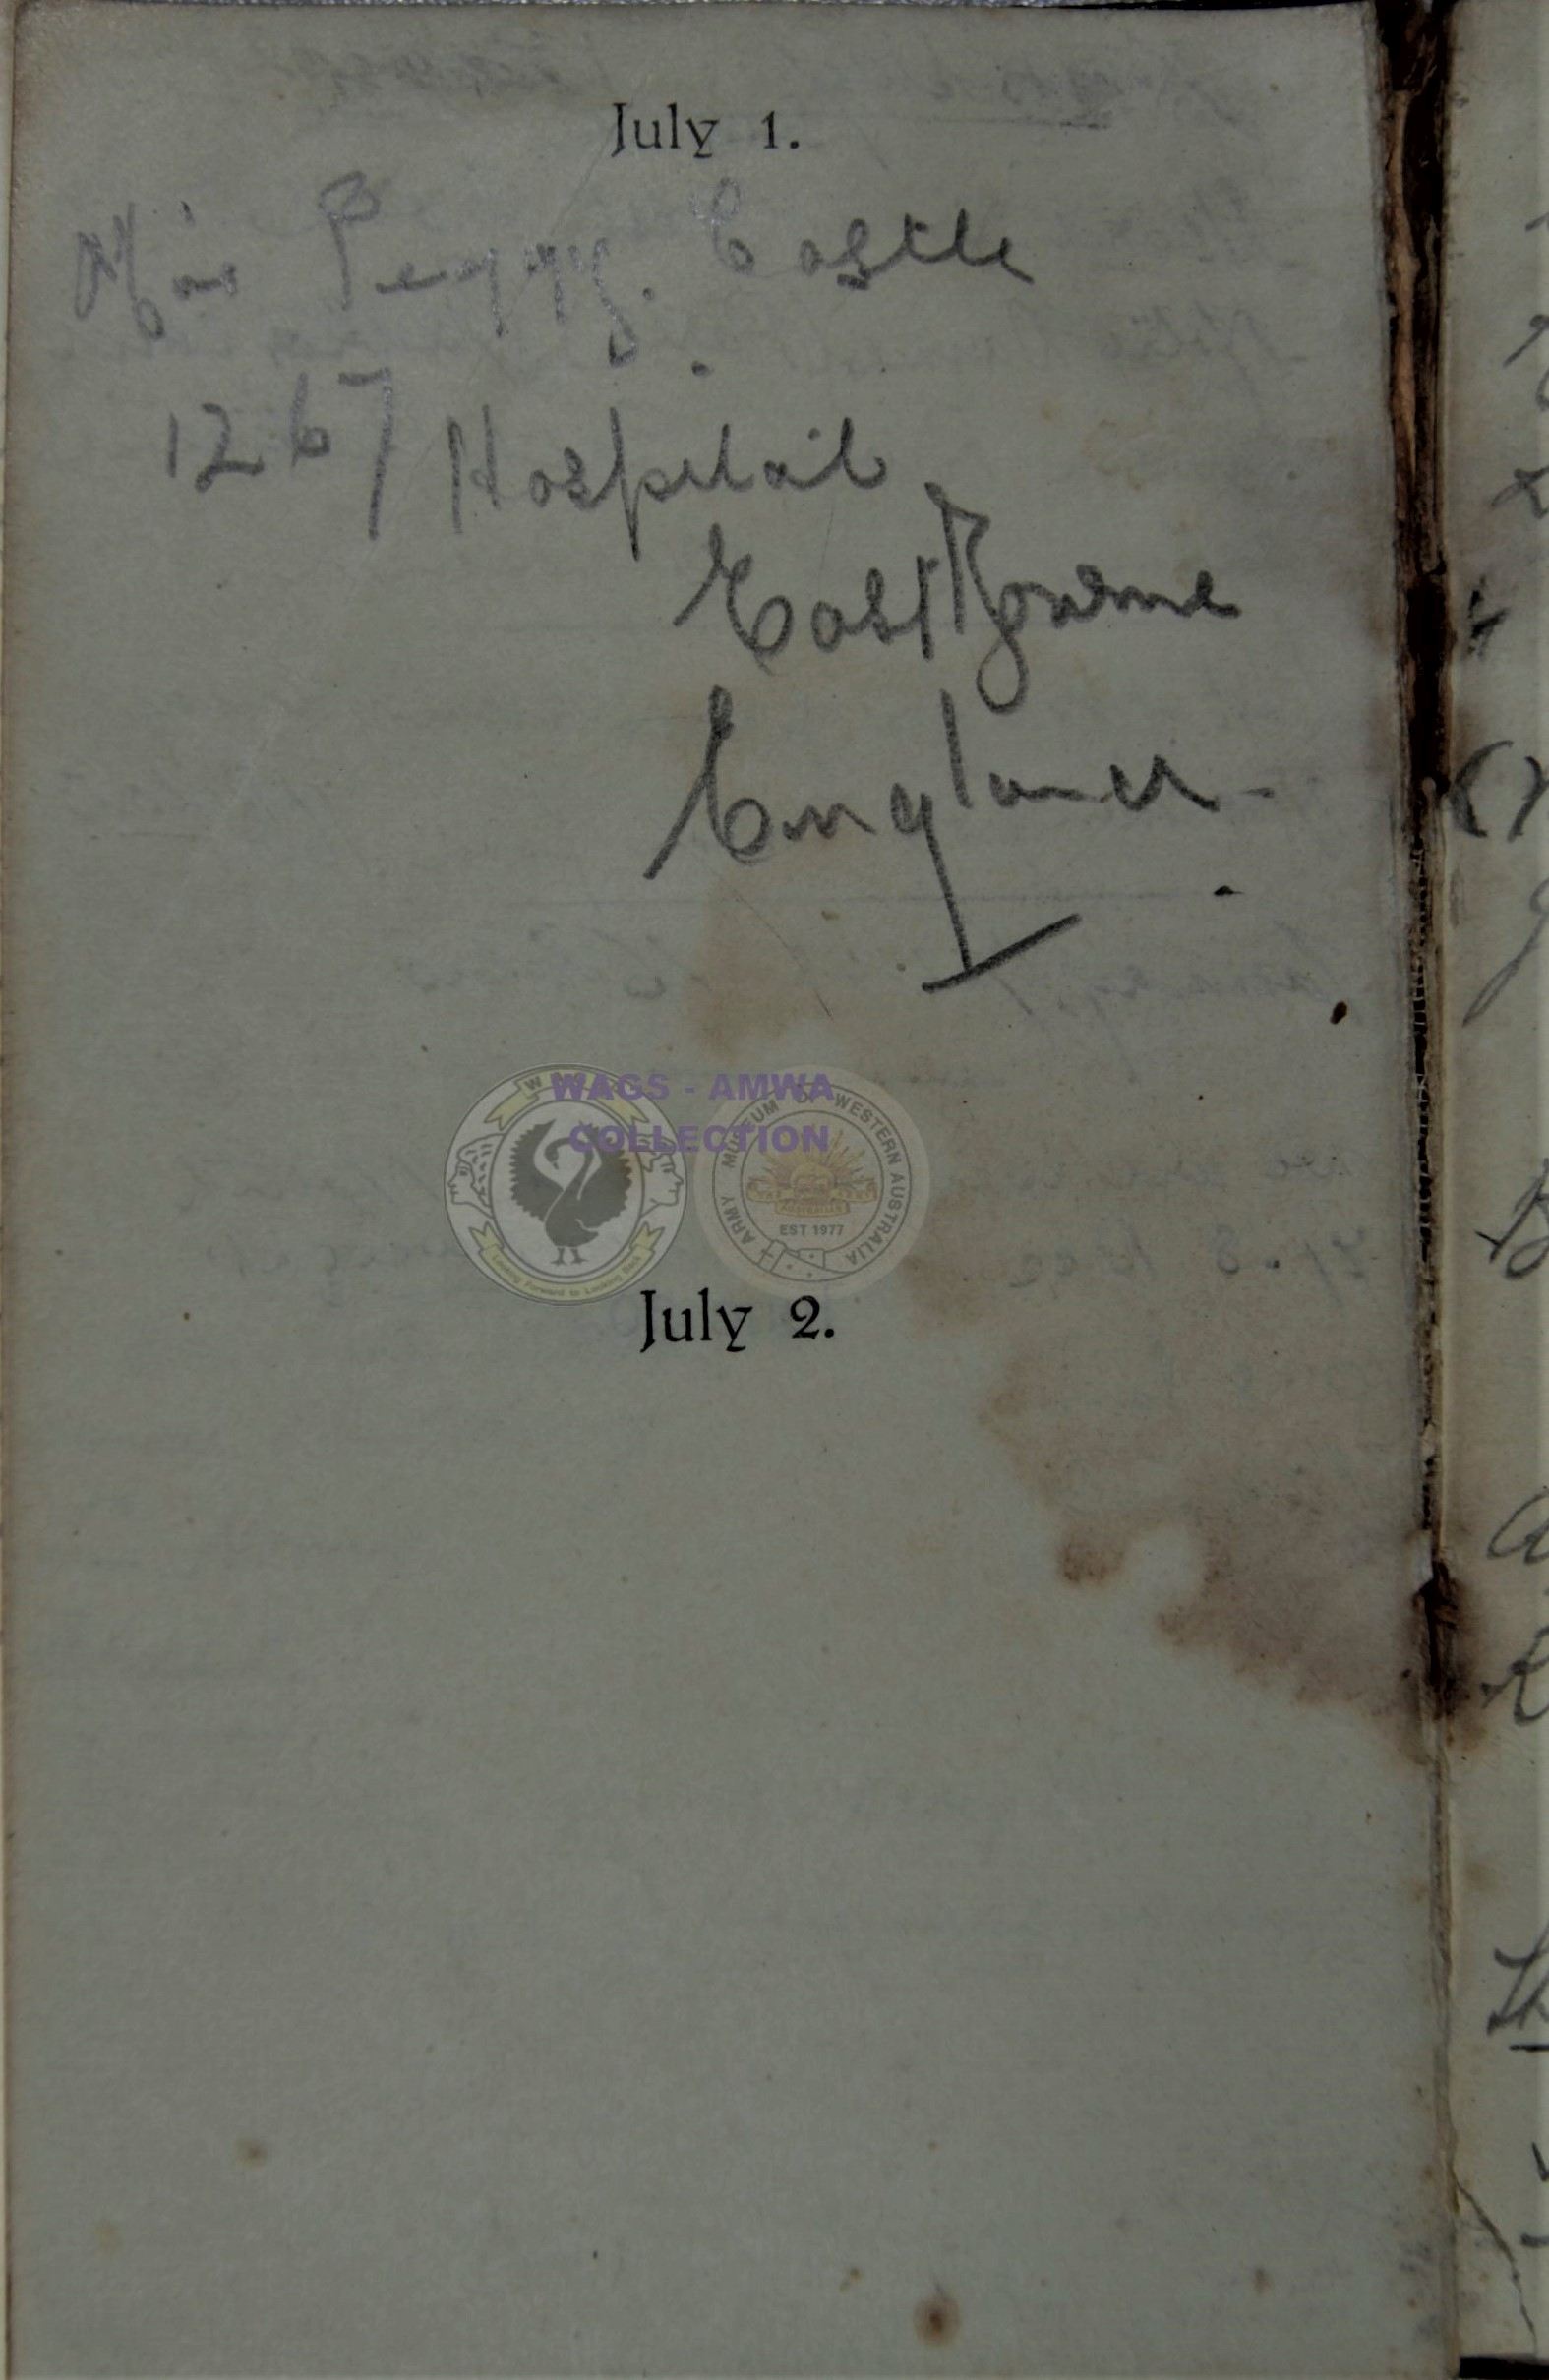 July 1.
Miss Peggy. Castle
1267 Hospital
EastBourne
England.
WAGS - AMWA
COLLECTION
ARMY MUSEUM OF WESTERN AUSTRALIA
EST 1977
Looking Forward to Looking Back
July 2.